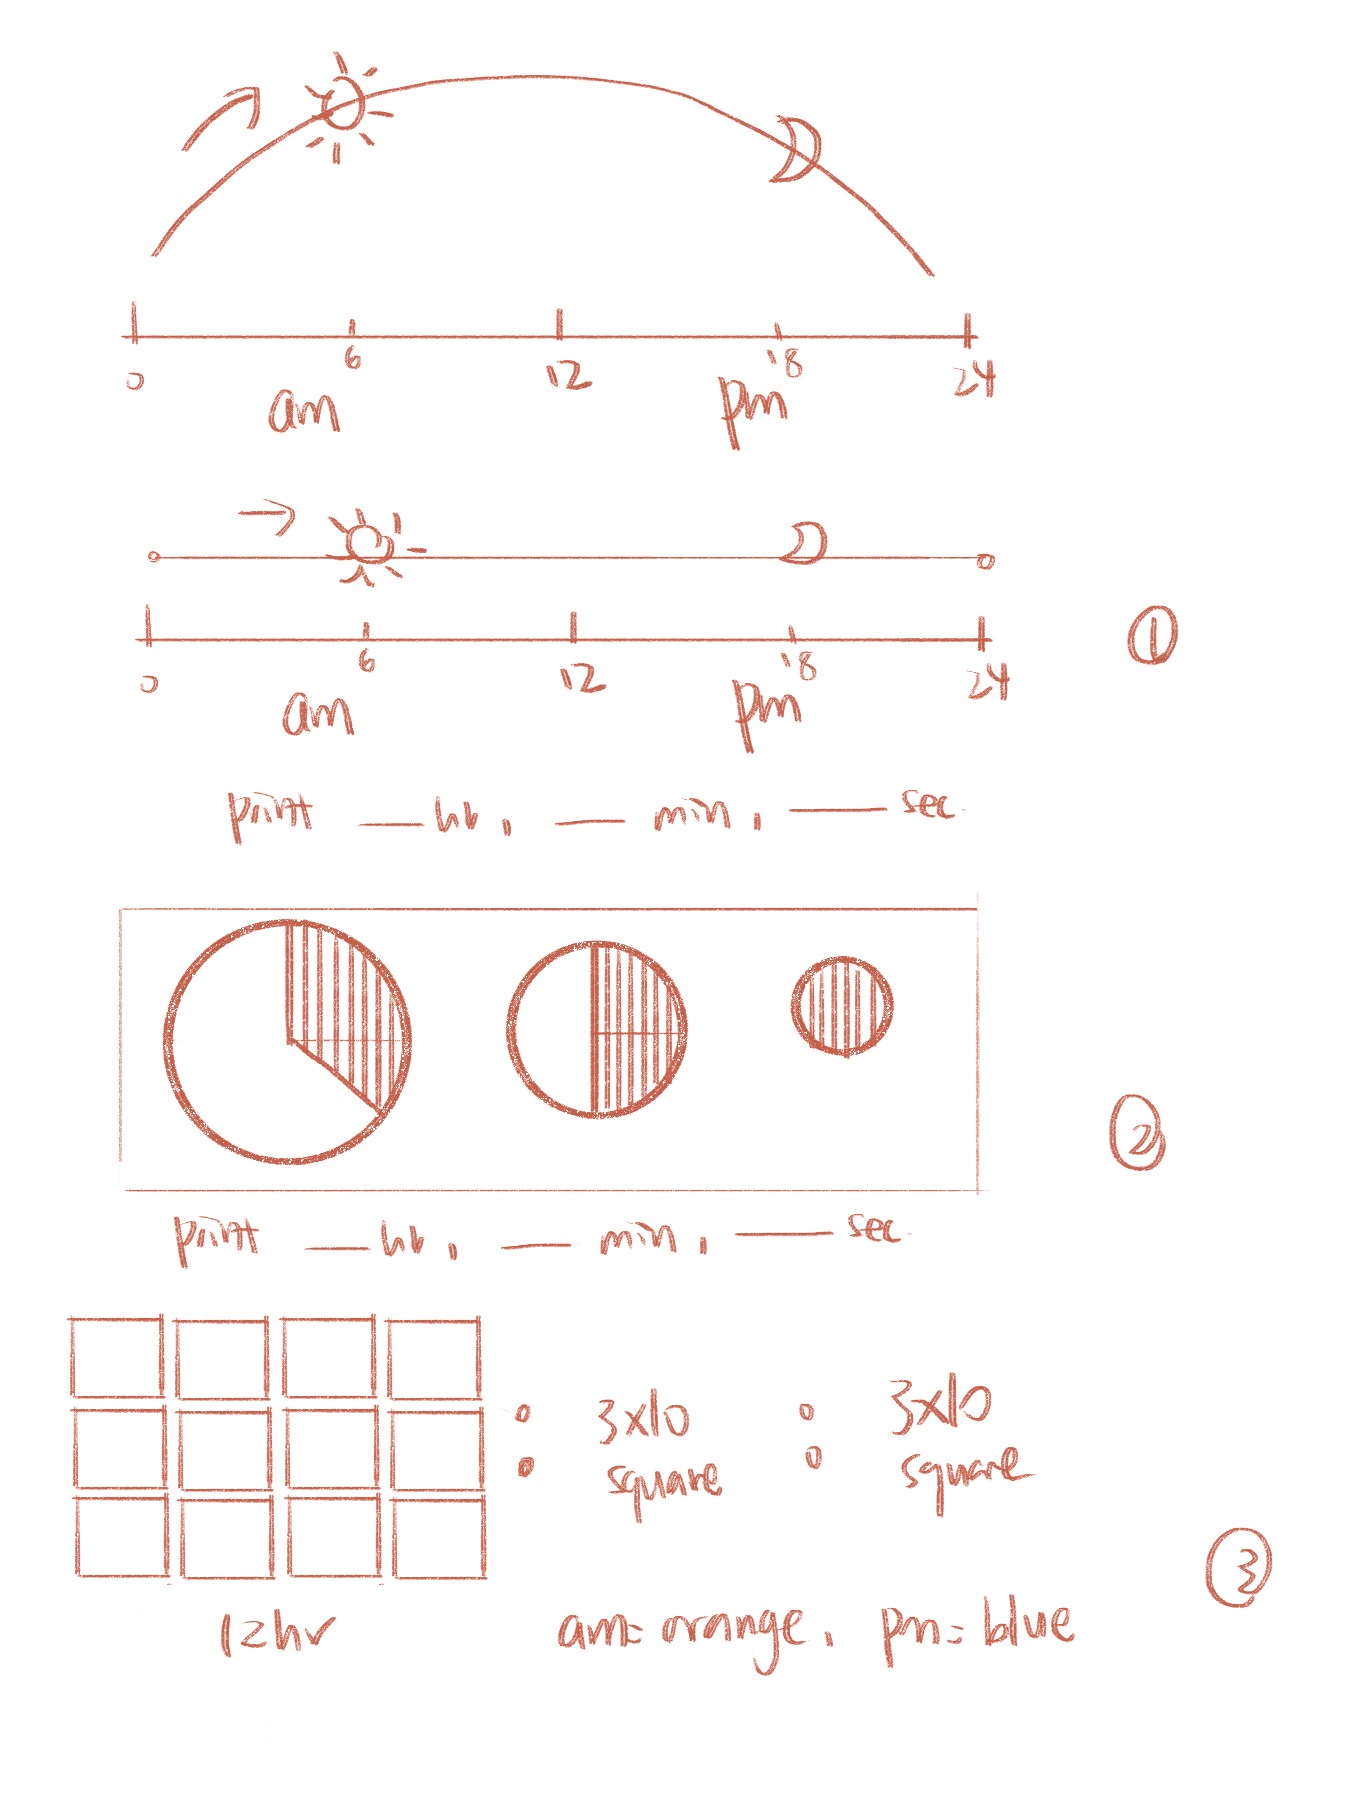 0 6 12 18 24
am pm
0 6 12 18 24
am pm
①
print __ hr, __ min, __ sec.
②
print __ hr, __ min, __ sec.
3x10 square
3x10 square
③
12hr
am=orange, pm=blue